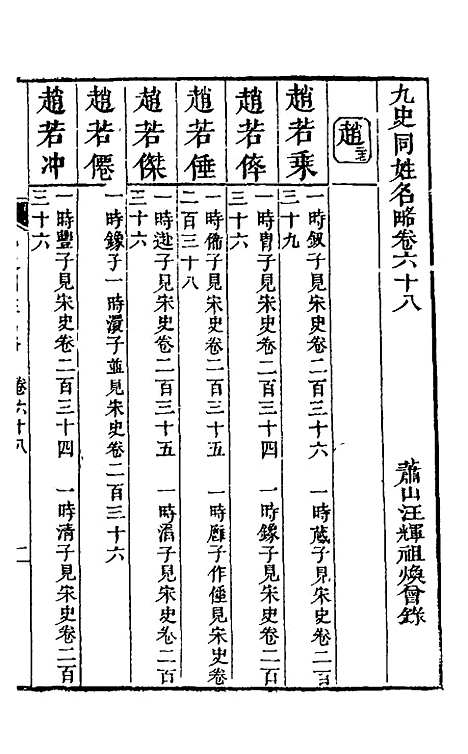 九史同姓名略卷六十八
蕭山汪輝祖煥曾錄
趙 若
趙若乘
一時釵子見宋史卷二百三十六
一時葴子見宋史卷二百
三十九
趙若倴
一時胄子見宋史卷二百三十四
一時鐌子見宋史卷二百
三十六
趙若倕
一時倫子見宋史卷二百三十五
一時子作倕見宋史卷
二百三十八
趙若傑
一時迯子見宋史卷二百三十五
一時滔子見宋史卷二百
三十六
趙若僊
一時鐌子一時瀷子並見宋史卷二百三十六
趙若冲
一時豐子見宋史卷二百三十四
一時清子見宋史卷二百
三十六
卷六十八